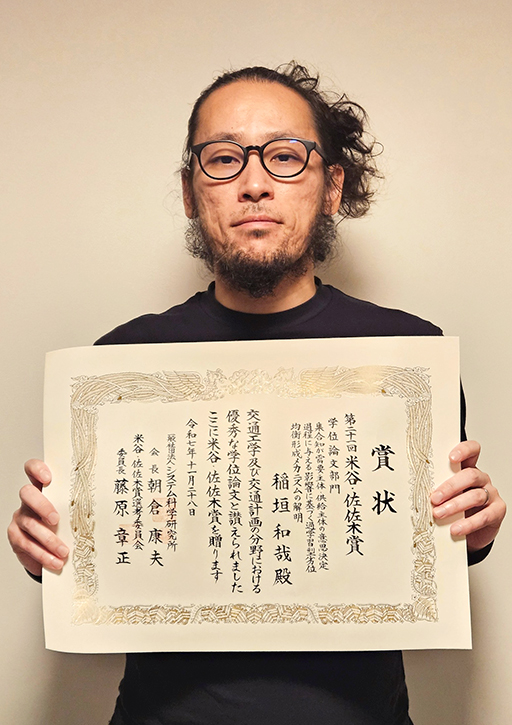 賞状
第二十一回 米谷・佐佐木賞
学位論文部門
集合知が需要主体・供給主体の意思決定
過程に与える影響に基づく過学習型
均衡形成メカニズムの解明
稲垣和哉殿
交通工学及び交通計画の分野における
優秀な学位論文と讃えられました
ここに米谷・佐佐木賞を贈ります
令和七年十一月二十八日
一般社団法人システム科学研究所
会長 朝倉康夫
米谷・佐佐木賞選考委員会
委員長 藤原章正